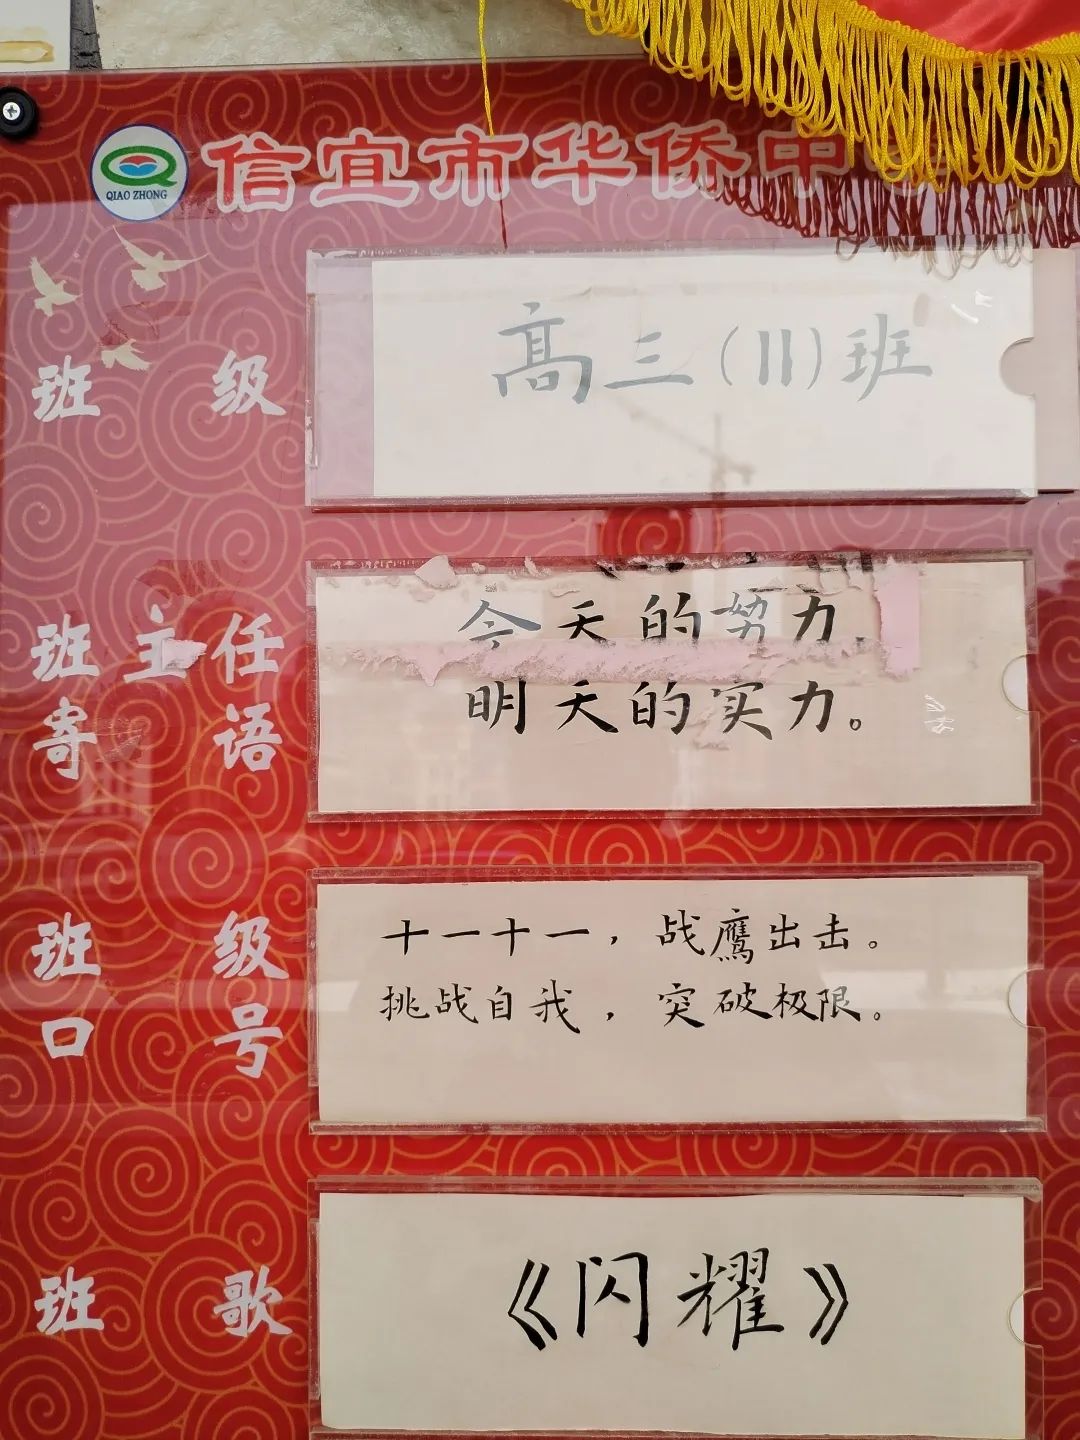 QIAO ZHONG
信宜市华侨中
班级
高三(11)班
班主任
寄语
今天的努力,
明天的实力。
班级
口号
十一十一,战鹰出击。
挑战自我,突破极限。
班歌
《闪耀》